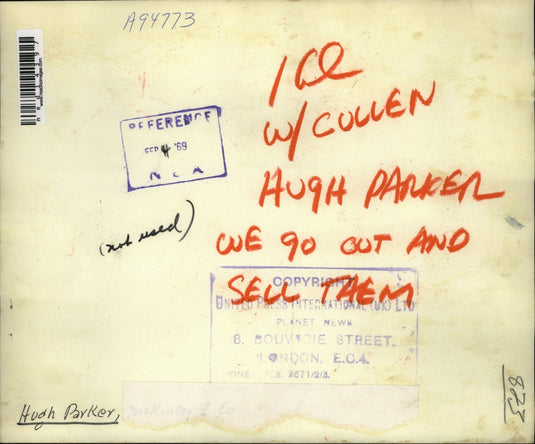 A94773
1 Col
W/ CULLEN
HUGH PARKER
WE GO OUT AND
SELL THEM
REFERENCE
FEB 4 '69
N E A
(not used)
COPYRIGHT
UNITED PRESS INTERNATIONAL (UK) LTD
PLANET NEWS
8. BOUVERIE STREET.
LONDON. E.C.4.
Hugh Parker, McKinsey & Co
528